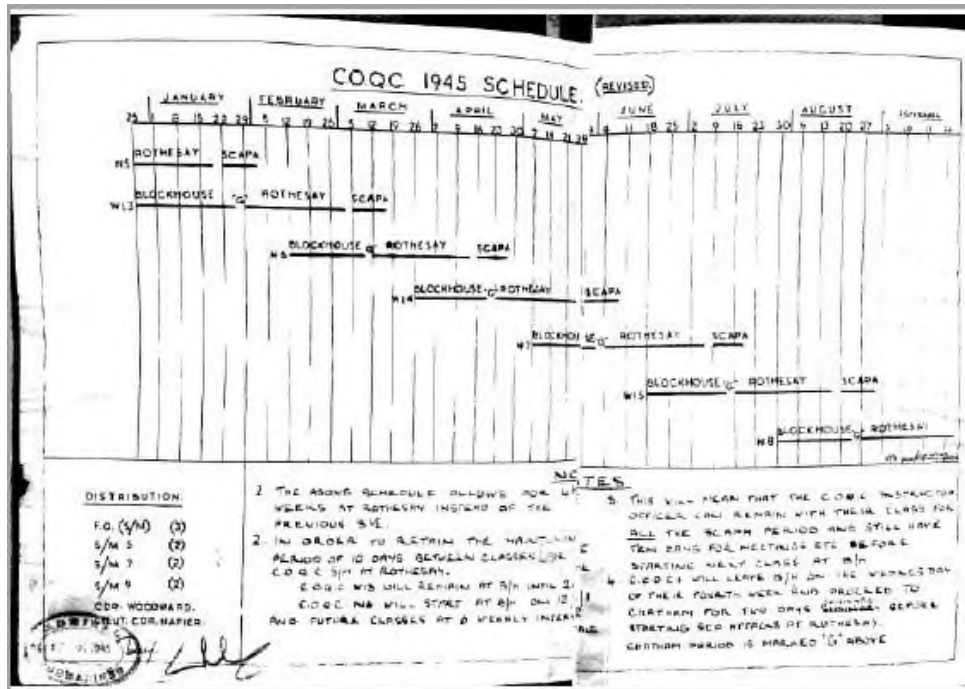 COQC 1945 SCHEDULE. (REVISED)
JANUARY FEBRUARY MARCH APRIL MAY JUNE JULY AUGUST
25 1 8 15 22 29 5 12 19 25 5 12 19 26 9 16 23 30 7 14 21 28 4 11 18 25 2 9 16 23 30 6 13 20 27 3 10 17
N5 ROTHESAY SCAPA
W13 BLOCKHOUSE "G" ROTHESAY SCAPA
N6 BLOCKHOUSE G ROTHESAY SCAPA
W14 BLOCKHOUSE "G" ROTHESAY SCAPA
N7 BLOCKHOUSE "G" ROTHESAY SCAPA
W15 BLOCKHOUSE "G" ROTHESAY SCAPA
N8 BLOCKHOUSE "G" ROTHESAY
DISTRIBUTION.
F.O. (S/M) (3)
S/M 5 (2)
S/M 7 (2)
S/M 9 (2)
CDR. WOODWARD.
LIEUT. CDR. NAPIER.
1945
NOTES
1. THE ABOVE SCHEDULE ALLOWS FOR
WEEKS AT ROTHESAY INSTEAD OF THE
PREVIOUS
2. IN ORDER TO RETAIN THE
PERIOD OF 10 DAYS BETWEEN CLASSES FOR
C.O.Q.C S/M AT ROTHESAY.
C.O.Q.C W13 WILL REMAIN AT B/H UNTIL
C.O.Q.C N6 WILL START AT B/H ON 12
AND FUTURE CLASSES AT 6 WEEKLY
3. THIS WILL MEAN THAT THE C.O.Q.C INSTRUCTOR
OFFICER CAN REMAIN WITH THEIR CLASS FOR
ALL THE SCAPA PERIOD AND STILL HAVE
TEN DAYS FOR MEETINGS ETC BEFORE
STARTING NEXT CLASS AT B/H.
4. C.O.Q.C's WILL LEAVE B/H ON THE WEDNESDAY
OF THEIR FOURTH WEEK AND PROCEED TO
CHATHAM FOR TWO DAYS BEFORE
STARTING SEA ATTACKS AT ROTHESAY.
CHATHAM PERIOD IS MARKED "G" ABOVE